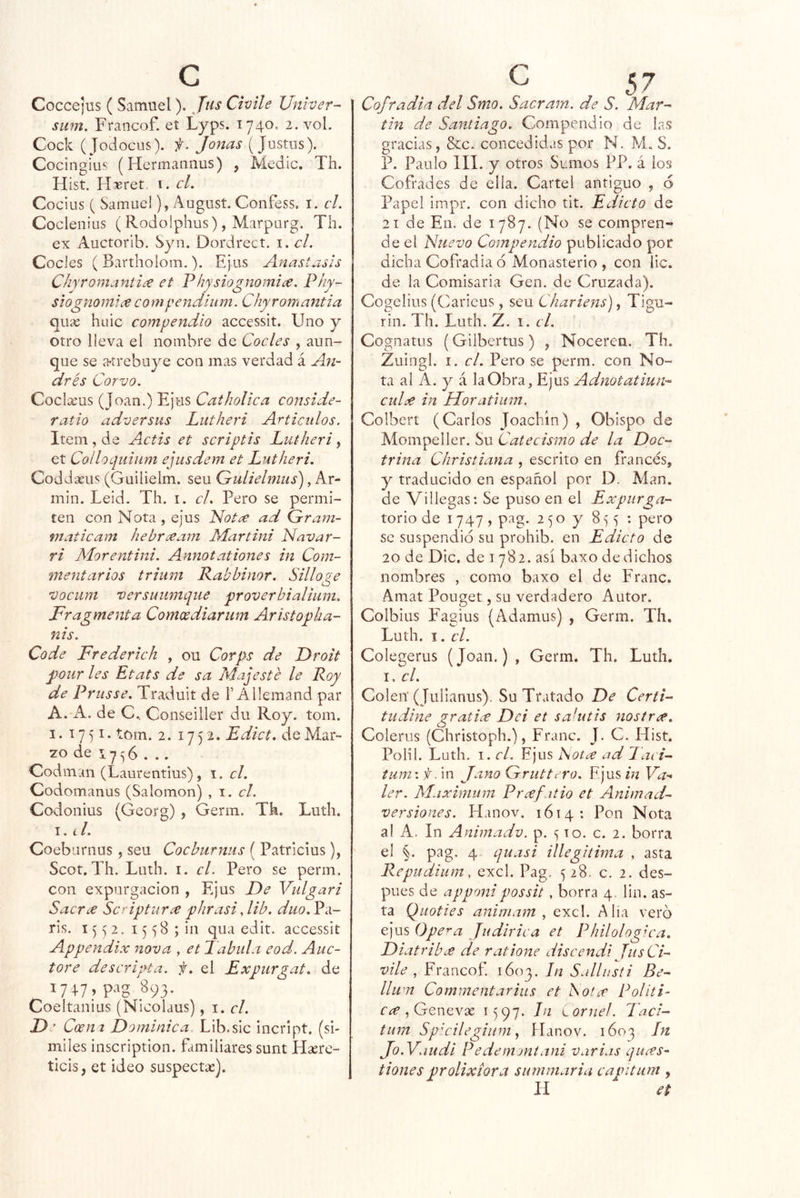 C
Coccejus ( Samuel ). Jus Civile Univer-
sum. Francof. et Lyps. 1740. 2. vol.
Cock (Jodocus). ℣. Jonas (Justus).
Cocingius (Hermannus) , Medic. Th.
Hist. Hæret. 1. cl.
Cocius ( Samuel ), August. Confess. 1. cl.
Coclenius (Rodolphus), Marpurg. Th.
ex Auctorib. Syn. Dordrect. 1. cl.
Cocles (Bartholom.). Ejus Anastasis
Chyromantiæ et Physiognomiæ. Phy-
siognomiæ compendium. Chyromantia
quæ huic compendio accessit. Uno y
otro lleva el nombre de Cocles , aun-
que se atrebuye con mas verdad á An-
drés Corvo.
Coclæus (Joan.) Ejus Catholica conside-
ratio adversus Lutheri Articulos.
Item, de Actis et scriptis Lutheri,
et Colloquium ejusdem et Lutheri.
Coddæus (Guilielm. seu Gulielmus), Ar-
min. Leid. Th. 1. cl. Pero se permi-
ten con Nota , ejus Notæ ad Gram-
maticam hebræam Martini Navar-
ri Morentini. Annotationes in Com-
mentarios trium Rabbinor. Silloge
vocum versuumque proverbialium.
Fragmenta Comœdiarum Aristopha-
nis.
Code Frederich , ou Corps de Droit
pour les Etats de sa Majestè le Roy
de Prusse. Traduit de l' Allemand par
A. A. de C. Conseiller du Roy. tom.
1. 1751. tom. 2. 1752. Edict. de Mar-
zo de 1756 . . .
Codman (Laurentius), 1. cl.
Codomanus (Salomon) , 1. cl.
Codonius (Georg) , Germ. Th. Luth.
1. cl.
Coeburnus , seu Cocburnus ( Patricius ),
Scot. Th. Luth. 1. cl. Pero se perm.
con expurgacion , Ejus De Vulgari
Sacræ Scripturæ phrasi, lib. duo. Pa-
ris. 1552. 1558 ; in qua edit. accessit
Appendix nova , et Tabula eod. Auc-
tore descripta. ℣. el Expurgat. de
1747, pag 893.
Coeltanius (Nicolaus), 1. cl.
De Cœna Dominica. Lib. sic incript. (si-
miles inscription. familiares sunt Hære-
ticis, et ideo suspectæ).
C 57
Cofradia del Smo. Sacram. de S. Mar-
tin de Santiago. Compendio de las
gracias, &c. concedidas por N. M. S.
P. Paulo III. y otros Sumos PP. á los
Cofrades de ella. Cartel antiguo , ó
Papel impr. con dicho tit. Edicto de
21 de En. de 1787. (No se compren-
de el Nuevo Compendio publicado por
dicha Cofradia ó Monasterio , con lic.
de la Comisaria Gen. de Cruzada).
Cogelius (Caricus , seu Chariens), Tigu-
rin. Th. Luth. Z. 1. cl.
Cognatus (Gilbertus) , Noceren. Th.
Zuingl. 1. cl. Pero se perm. con No-
ta al A. y á la Obra, Ejus Adnotatiun-
culæ in Horatium.
Colbert (Carlos Joachin) , Obispo de
Mompeller. Su Catecismo de la Doc-
trina Christiana , escrito en francés,
y traducido en español por D. Man.
de Villegas: Se puso en el Expurga-
torio de 1747, pag. 250 y 855 : pero
se suspendió su prohib. en Edicto de
20 de Dic. de 1782. así baxo de dichos
nombres , como baxo el de Franc.
Amat Pouget, su verdadero Autor.
Colbius Fagius (Adamus) , Germ. Th.
Luth. 1. cl.
Colegerus (Joan.) , Germ. Th. Luth.
1. cl.
Colen (Julianus). Su Tratado De Certi-
tudine gratiæ Dei et salutis nostræ.
Colerus (Christoph.), Franc. J. C. Hist.
Polil. Luth. 1. cl. Ejus Notæ ad Taci-
tum: ℣. in Jano Gruttero. Ejus in Va-
ler. Maximum Præfatio et Animad-
versiones. Hanov. 1614 : Pon Nota
al A. In Animadv. p. 510. c. 2. borra
el §. pag. 4 quasi illegitima , asta
Repudium, excl. Pag. 528. c. 2. des-
pues de apponi possit, borra 4. lin. as-
ta Quoties animam , excl. Alia verò
ejus Opera Judirica et Philologica.
Diatribæ de ratione discendi Jus Ci-
vile , Francof. 1603. In Sallusti Be-
llum Commentarius et Notæ Politi-
cæ , Genevæ 1597. In Cornel. Taci-
tum Spicilegium, Hanov. 1603 In
Jo. Vaudi Pedemontani varias quæs-
tiones prolixiora summaria capitum ,
H et